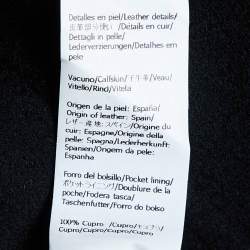 Detalles en piel/Leather details/
皮革部分使い/Détails en cuir/
Dettagli in pelle/
Lederverzierungen/Detalhes em
pele
Vacuno/Calfskin/子牛革/Veau/
Vitello/Rind/Vitela
Origen de la piel: España/
Origin of leather: Spain/
レザー産地: スペイン/Origine du
cuir: Espagne/Origine della
pelle: Spagna/Lederherkunft:
Spanien/Origem da pele:
Espanha
Forro del bolsillo/Pocket lining/
ポケットライニング/Doublure de la
poche/Fodera tasca/
Taschenfutter/Forro do bolso
100% Cupro /Cupro/キュプラ/
Cupro/Cupro/Cupro/Cupro